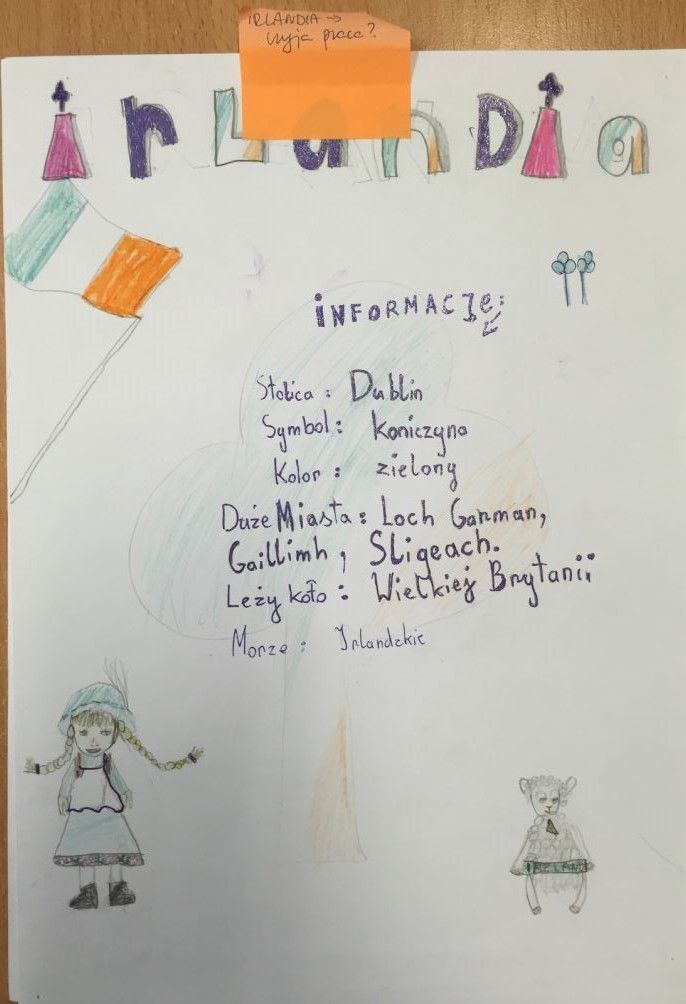 IRLANDIA →
czyja praca?
irLanDia
iNFORMACJe:
Stolica : Dublin
Symbol : koniczyna
Kolor : zielony
Duże Miasta : Loch Garman,
Gaillimh, Sligeach.
Leży koło : Wielkiej Brytanii
Morze : Irlandzkie